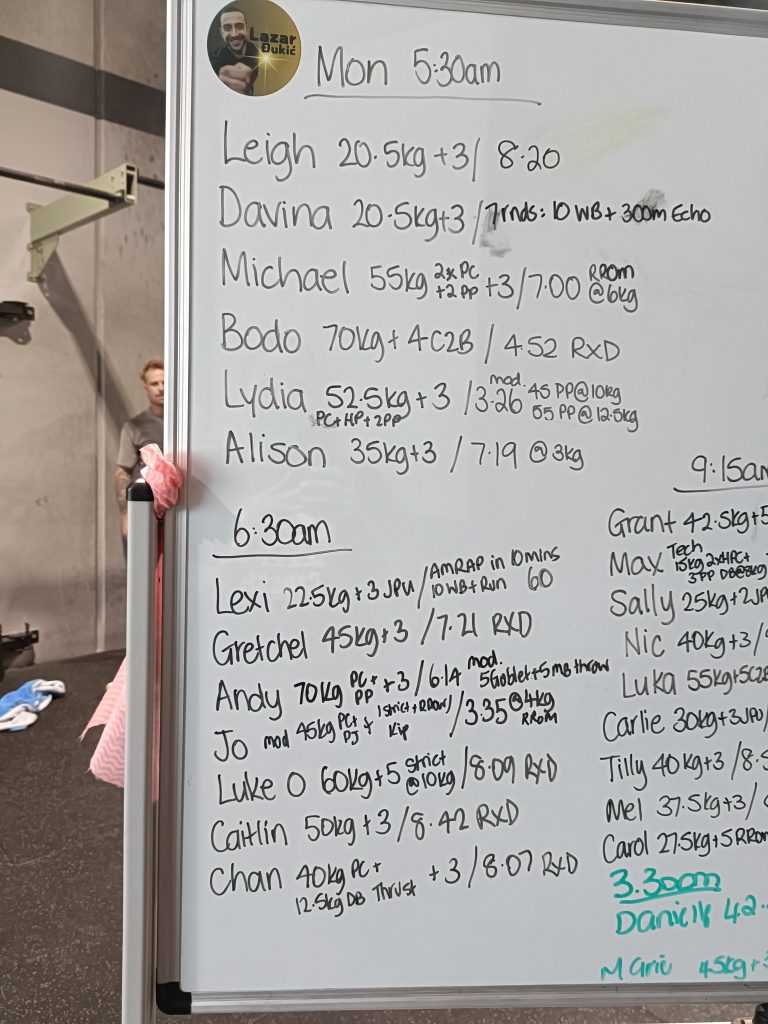 Lazar
Đukić
Mon 5:30am
Leigh 20.5kg +3/ 8.20
Davina 20.5kg+3 /7rnds: 10 WB + 300m Echo
Michael 55kg 2x PC +2 PP +3/7.00 RROM @6kg
Bodo 70kg + 4C2B / 4.52 RXD
Lydia 52.5kg + 3 /3.26 mod. 45 PP@10kg
PC+HP+2PP 55 PP@12.5kg
Alison 35kg+3 / 7.19 @3kg
6:30am
Lexi 22.5kg + 3 JPU /AMRAP in 10mins 10WB + Run 60
Gretchel 45kg+3 /7.21 RXD
Andy 70kg PC+ PP +3/6.14 mod. 5Goblet+5MB throw
Jo mod 45kg PC+ PJ + 1 strict + RROM/ Kip /3.35 @4kg RROM
Luke O 60kg+5 strict @10kg /8.09 RXD
Caitlin 50kg +3/8.42 RXD
Chan 40kg PC+ +3/8.07 RXD
12.5kg DB Thrust
9:15am
Grant 42.5kg+5
Max Tech 15kg 2xHPC+
3PP DB@8kg
Sally 25kg+2JPU
Nic 40kg+3/
Luka 55kg+5C2B
Carlie 30kg+3JPU/
Tilly 40kg+3 /8.5
Mel 37.5kg+3/
Carol 27.5kg+5RROM
3.30pm
42.
45kg+3